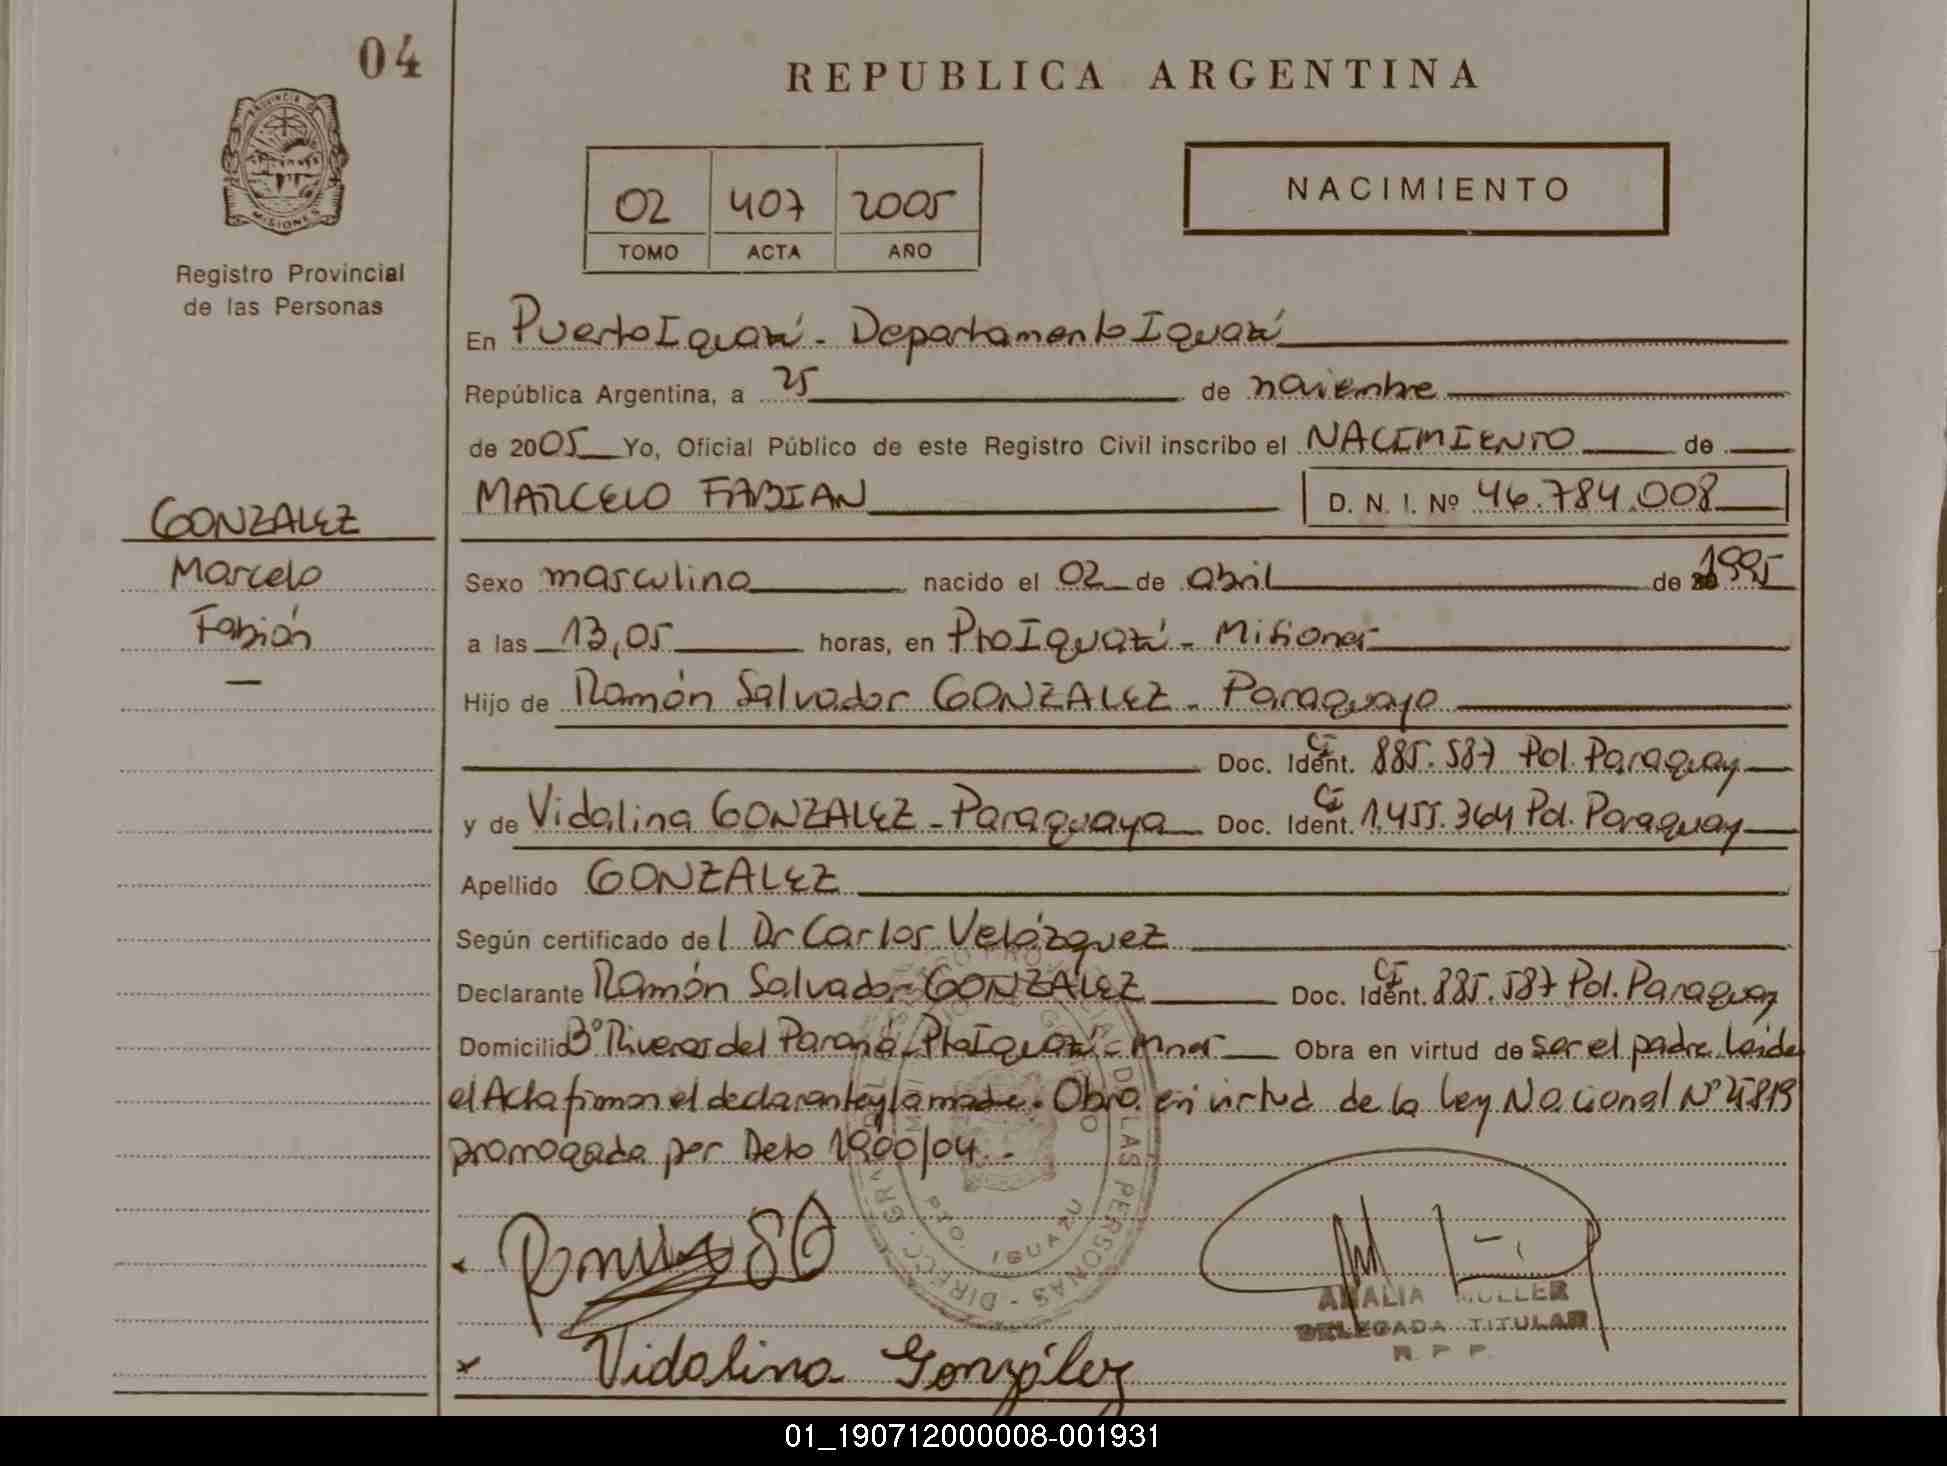 04
REPUBLICA ARGENTINA
PROVINCIA DE
MISIONES
Registro Provincial
de las Personas
02 407 2005
TOMO ACTA AÑO
NACIMIENTO
En Puerto Iguazú - Departamento Iguazú
República Argentina, a 25 de noviembre
de 2005 Yo, Oficial Público de este Registro Civil inscribo el NACIMIENTO de
MARCELO FABIAN D. N. I. Nº 46.784.008
GONZALEZ
Marcelo
Fabián
Sexo masculino nacido el 02 de abril de 1995
a las 13,05 horas, en Pto Iguazú - Misiones
Hijo de Ramón Salvador GONZALEZ - Paraguayo
Doc. Ident. CI 885.587 Pol. Paraguay
y de Vidalina GONZALEZ - Paraguaya Doc. Ident. CI 1.455.364 Pol. Paraguay
Apellido GONZALEZ
Según certificado del Dr Carlos Velázquez
Declarante Ramón Salvador GONZALEZ Doc. Ident. CI 885.587 Pol. Paraguay
Domicilio Bº Riveras del Paraná - Pto Iguazú - Mnes Obra en virtud de ser el padre Leída
el Acta firman el declarante y la madre. Obra en virtud de la Ley Nacional Nº 25819
promogada por Dcto 1900/04.-
DIRECC. GRAL. DEL REGISTRO PROVINCIAL DE LAS PERSONAS
PTO. IGUAZU
Vidalina González
ANALIA MULLER
DELEGADA TITULAR
R. P. P.
01_190712000008-001931